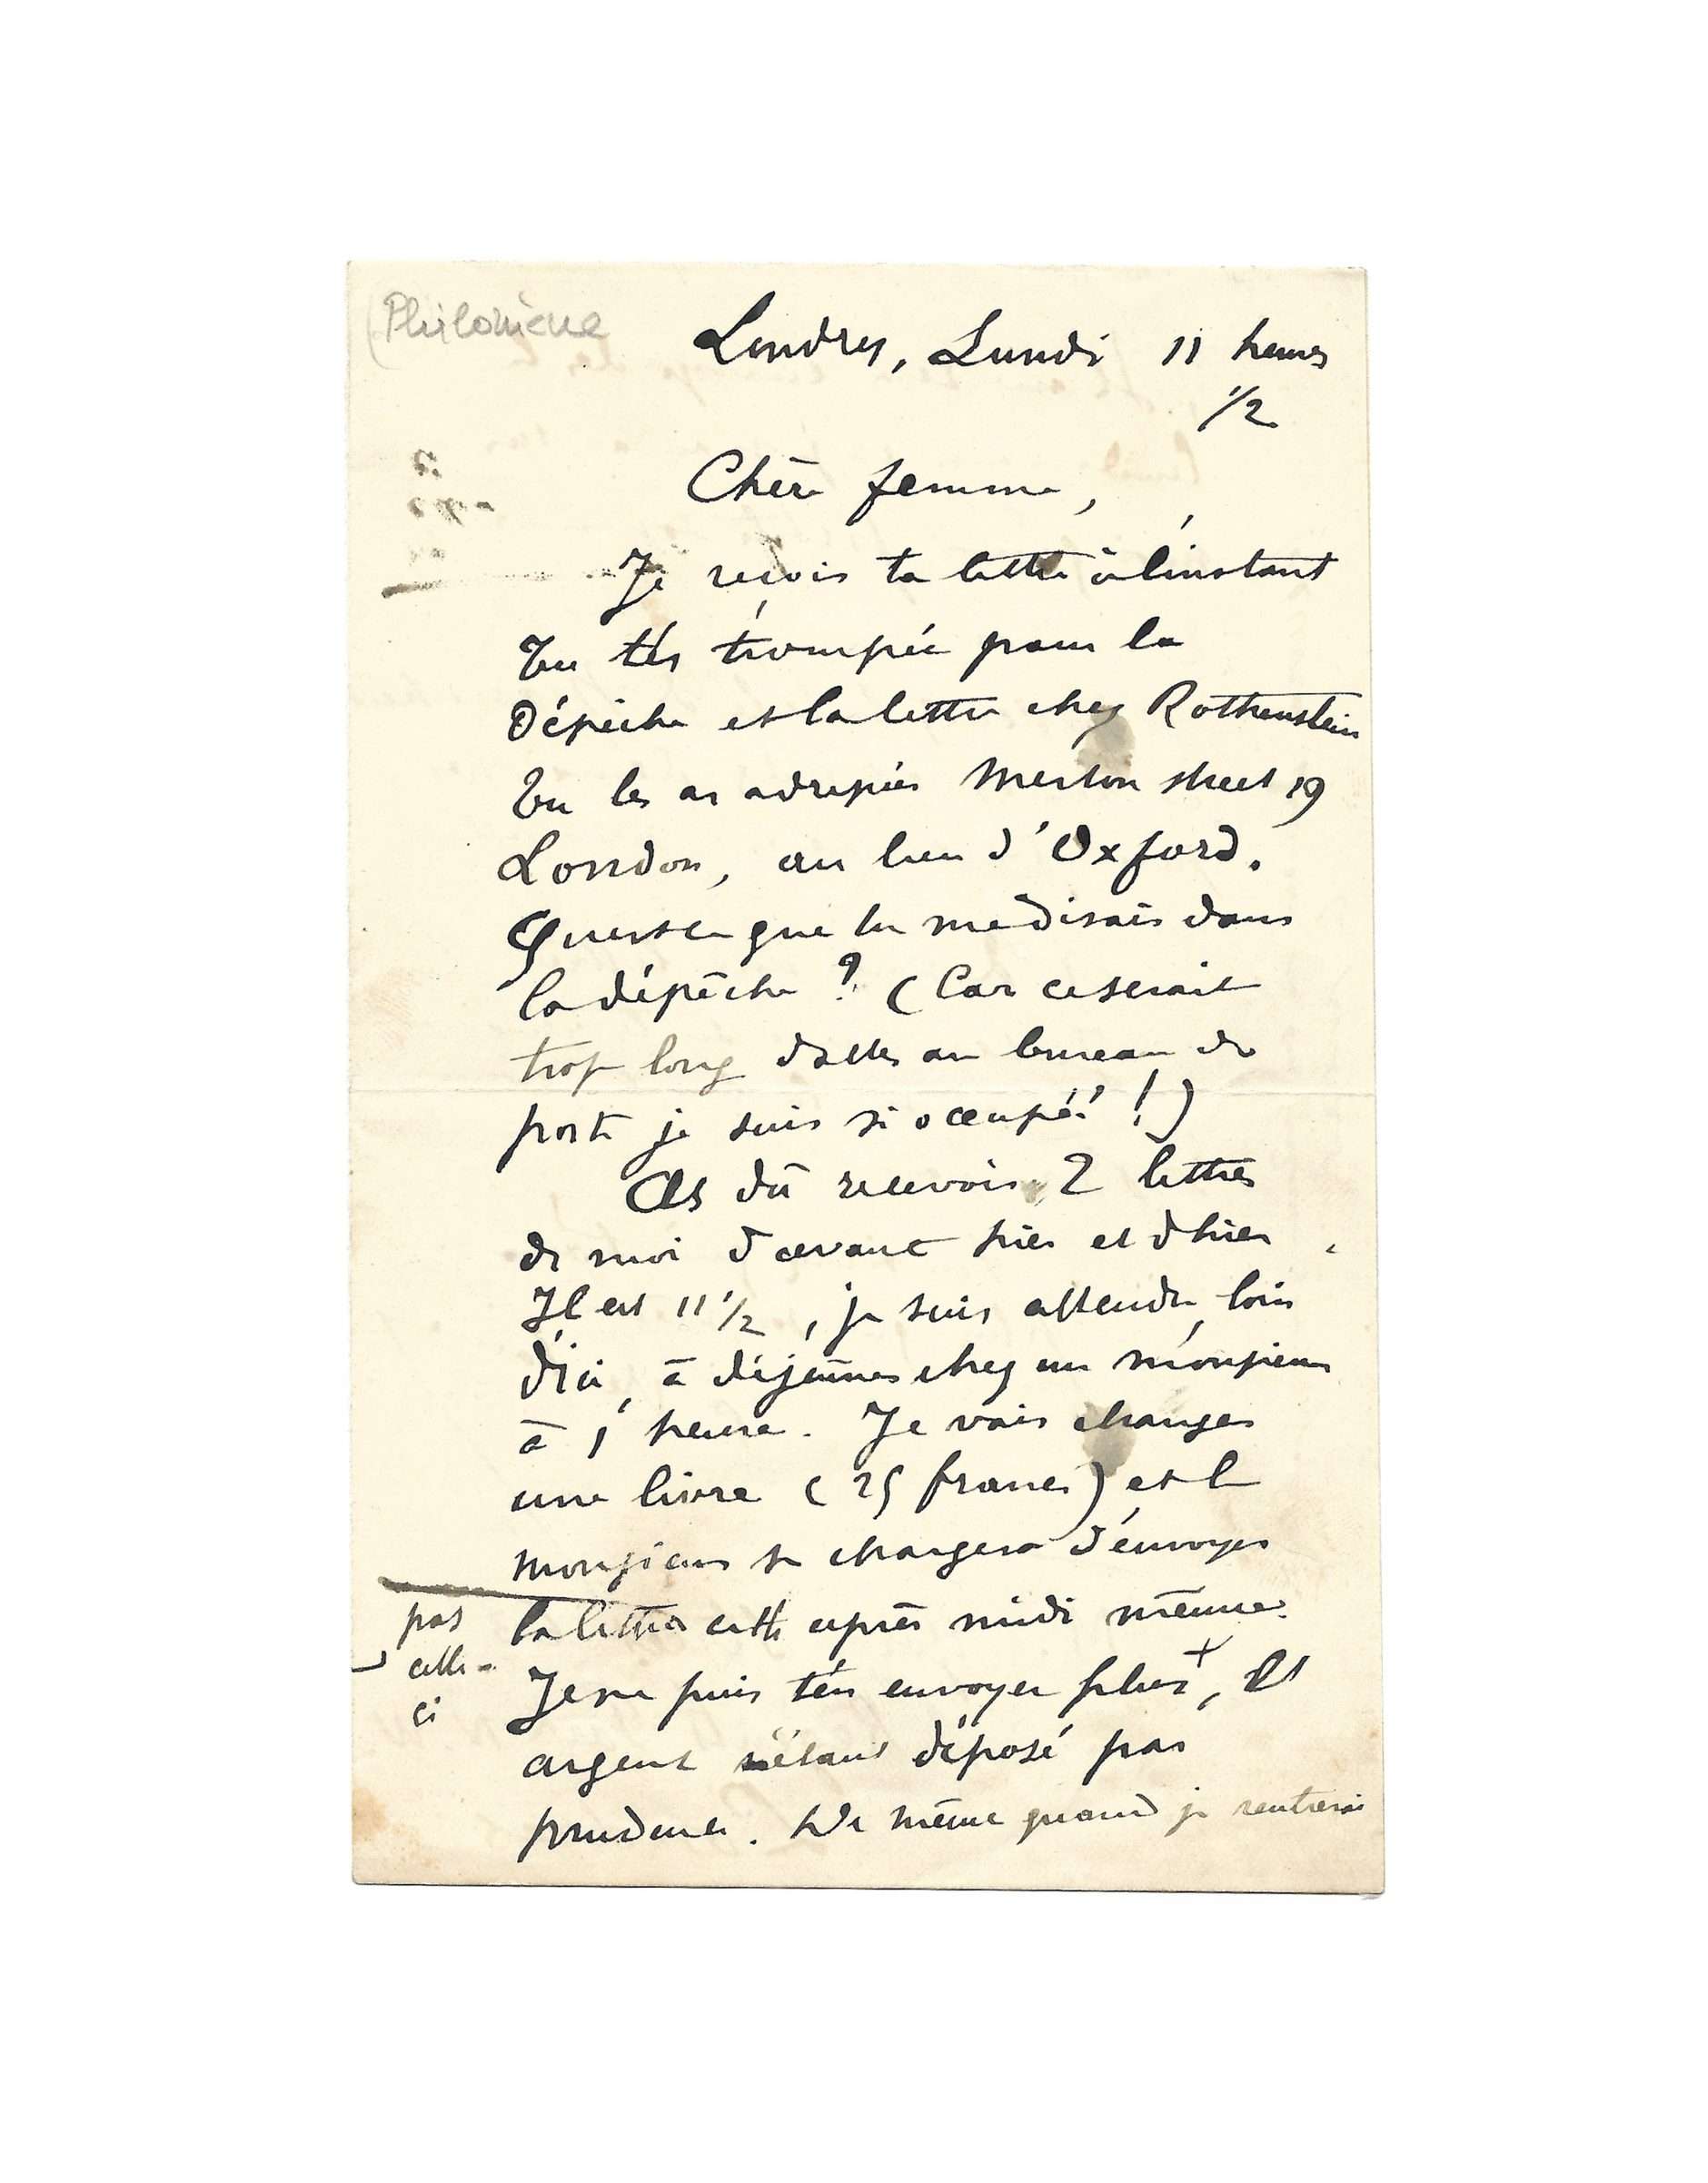 Philomène
Londres, Lundi 11 heures
1/2
Chère femme,
Je reçois ta lettre à l'instant
Tu t'es trompée pour la
Dépêche et la lettre chez Rothenstein
Tu les as adressées Merton street 19
London, au lieu d'Oxford.
Qu'est ce que tu me disais dans
la dépêche ? (Car ce serait
trop long d'aller au bureau de
poste je suis si occupé !)
As dû recevoir 2 lettres
de moi d'avant hier et d'hier.
Il est 11 1/2, je suis attendu, loin
d'ici, à déjeuner chez un monsieur
à 1 heure. Je vais changer
une livre (25 francs) et l
monsieur se chargera d'envoyer
la lettre cette après midi même.
pas
celle-
ci
Je ne puis t'en envoyer plus +,
argent étant déposé par
prudence. De même quand je rentrerai